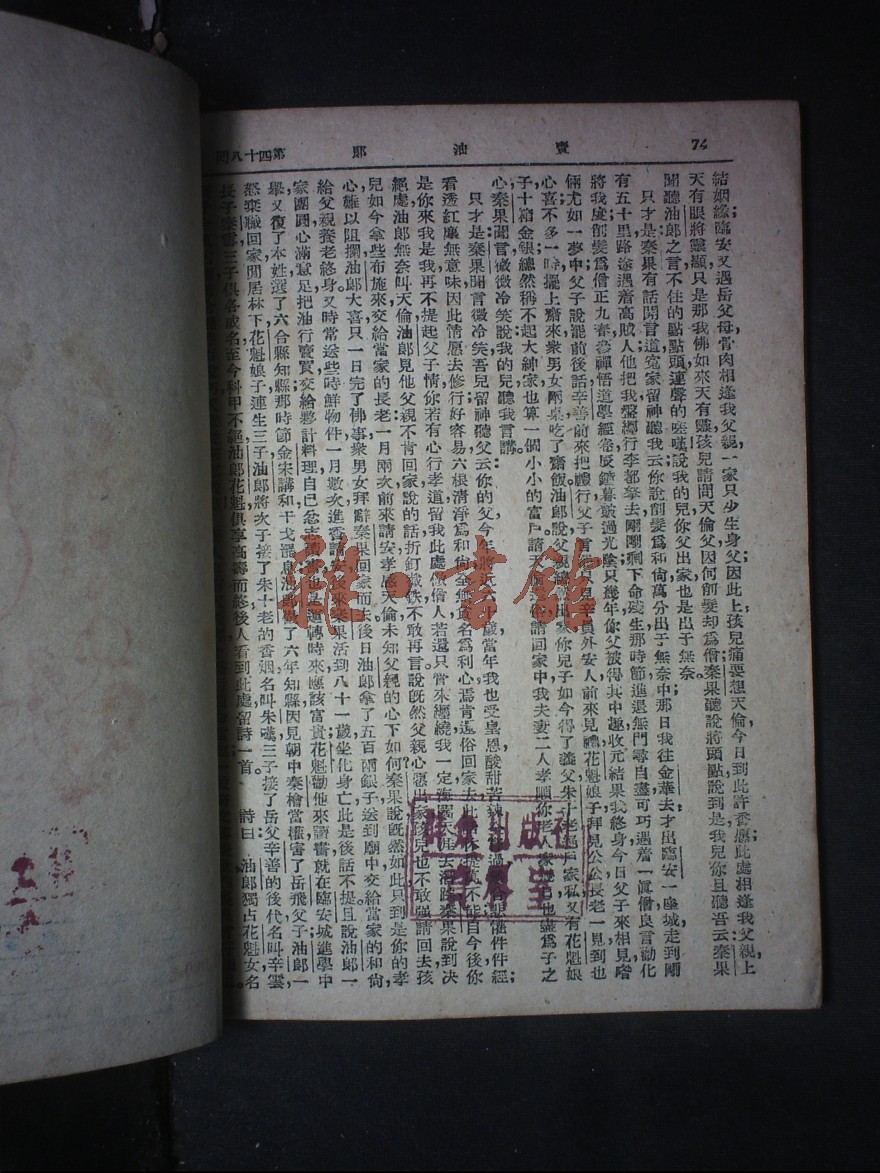 74
賣油郎
第四十八回
結姻緣臨安又遇岳父母骨肉相逢我父親一家只少生身父因此上孩兒痛哀想天倫今日到此許香愿此處相逢我父親上
天有眼將靈顯只是那我佛如來天有靈孩兒請問天倫父因何削髮却爲僧秦果聽說將頭點說到是我兒你且聽吾云秦果
聞聽油郎之言不住的點點頭連聲的嘆說我的兒你父出家也是出于無奈
只才是秦果有話開言道寃家留神聽我云你說削髮爲和尚萬分出于無奈中那日我往金華去才出臨安一座城走到剛
有五十里路途遇着高賊人他把我盤纏行李都拏去剛剛剩下命殘生那時節進退無門尋自盡可巧遇着一眞僧良言勸化
將我度削髮爲僧正九春禪悟道學經卷晨鐘暮皷過光陰只幾年你父被得其中趣收元結果我終身今日父子來相見啥
倆尤如一夢中父子說罷前後話辛善前來把禮行父子言只見辛員外安人前來見禮花魁娘子拜見公公長老一見到也
心喜不多一時擺上齋來衆男女兩桌吃了齋飯油郎說父親出家你兒子如今得了義父朱十老家私又有花魁娘
子十箱金銀總然稱不起大紳家也算一個小小的富戶請回家中我夫妻二人孝順你老人家也盡爲子之
心秦果聞言微微冷笑說我的兒聽我言講
只才是秦果開言微冷笑吾兒留神聽父云你的父今年將近歲當年我也受皇恩酸甜苦辣件件經
看透紅塵無意味因此情愿去修行好容易六根清淨爲和尚全無名爲利心焉肯還俗回家去此自今後你
是你來我是我再不提起父子情你若有心行孝道留我此處個僧人若還只管來纏繞我一定海闊天涯去秦果說到決
絕處油郎無奈叫天倫油郎見他父親不肯回家說的話折釘截鉄不敢再言說旣然父親心愿出家孩兒也不敢强請回去孩
兒如今拿些布施來交給當家的長老一月兩次前來請安孝感天倫未知父親的心下如何秦果說旣然如此只到是你的孝
心難以阻攔油郎大喜只一日完了佛事衆男女拜辭秦果回家而去後日油郎拿了五百兩銀子送到廟中交給當家的和尚
給父親養老終身又時常送些時鮮物件一月數次進香請安後來秦果活到八十一歲坐化身亡此是後話不提且說油郎一
家團圓心滿意足把油行賣買交給夥計料理自己也是運轉時來應該富貴花魁勸他來讀書就在臨安城進學中
舉又復了本姓選了六合縣知縣那時節金宋講和干戈罷息油郎做了六年知縣因見朝中秦檜當權害了岳飛父子油郎一
怒棄職回家閒居林下花魁娘子連生三子油郎將次子接了朱十老的香烟名叫朱三子接了岳父辛善的後代名叫辛雲
長子秦三子俱各成名至今科甲不油郎花魁俱享高壽而終後人看到此處留詩一首
詩曰
油郎獨占花魁女名
雜·書館